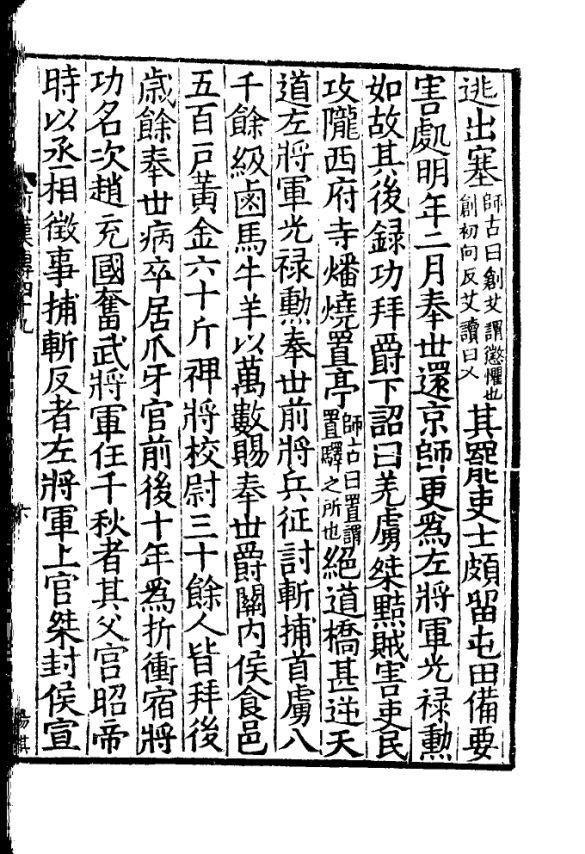 逃出塞師古曰創艾謂懲懼也創初向反艾讀曰乂其罷吏士頗留屯田備要
害處明年二月奉丗還京師更爲左將軍光禄勲
如故其後録功拜爵下詔曰羌虜桀黠賊害吏民
攻隴西府寺燔燒置亭師古曰置謂置驛之所也絕道橋甚逆天
道左將軍光禄勲奉丗前將兵征討斬捕首虜八
千餘級鹵馬牛羊以萬數賜奉丗爵關内侯食邑
五百戶黃金六十斤裨將校尉三十餘人皆拜後
歳餘奉丗病卒居爪牙官前後十年爲折衝宿將
功名次趙充國奮武將軍任千秋者其父宮昭帝
時以丞相徵事捕斬反者左將軍上官桀封侯宣
前漢傳四十九
六